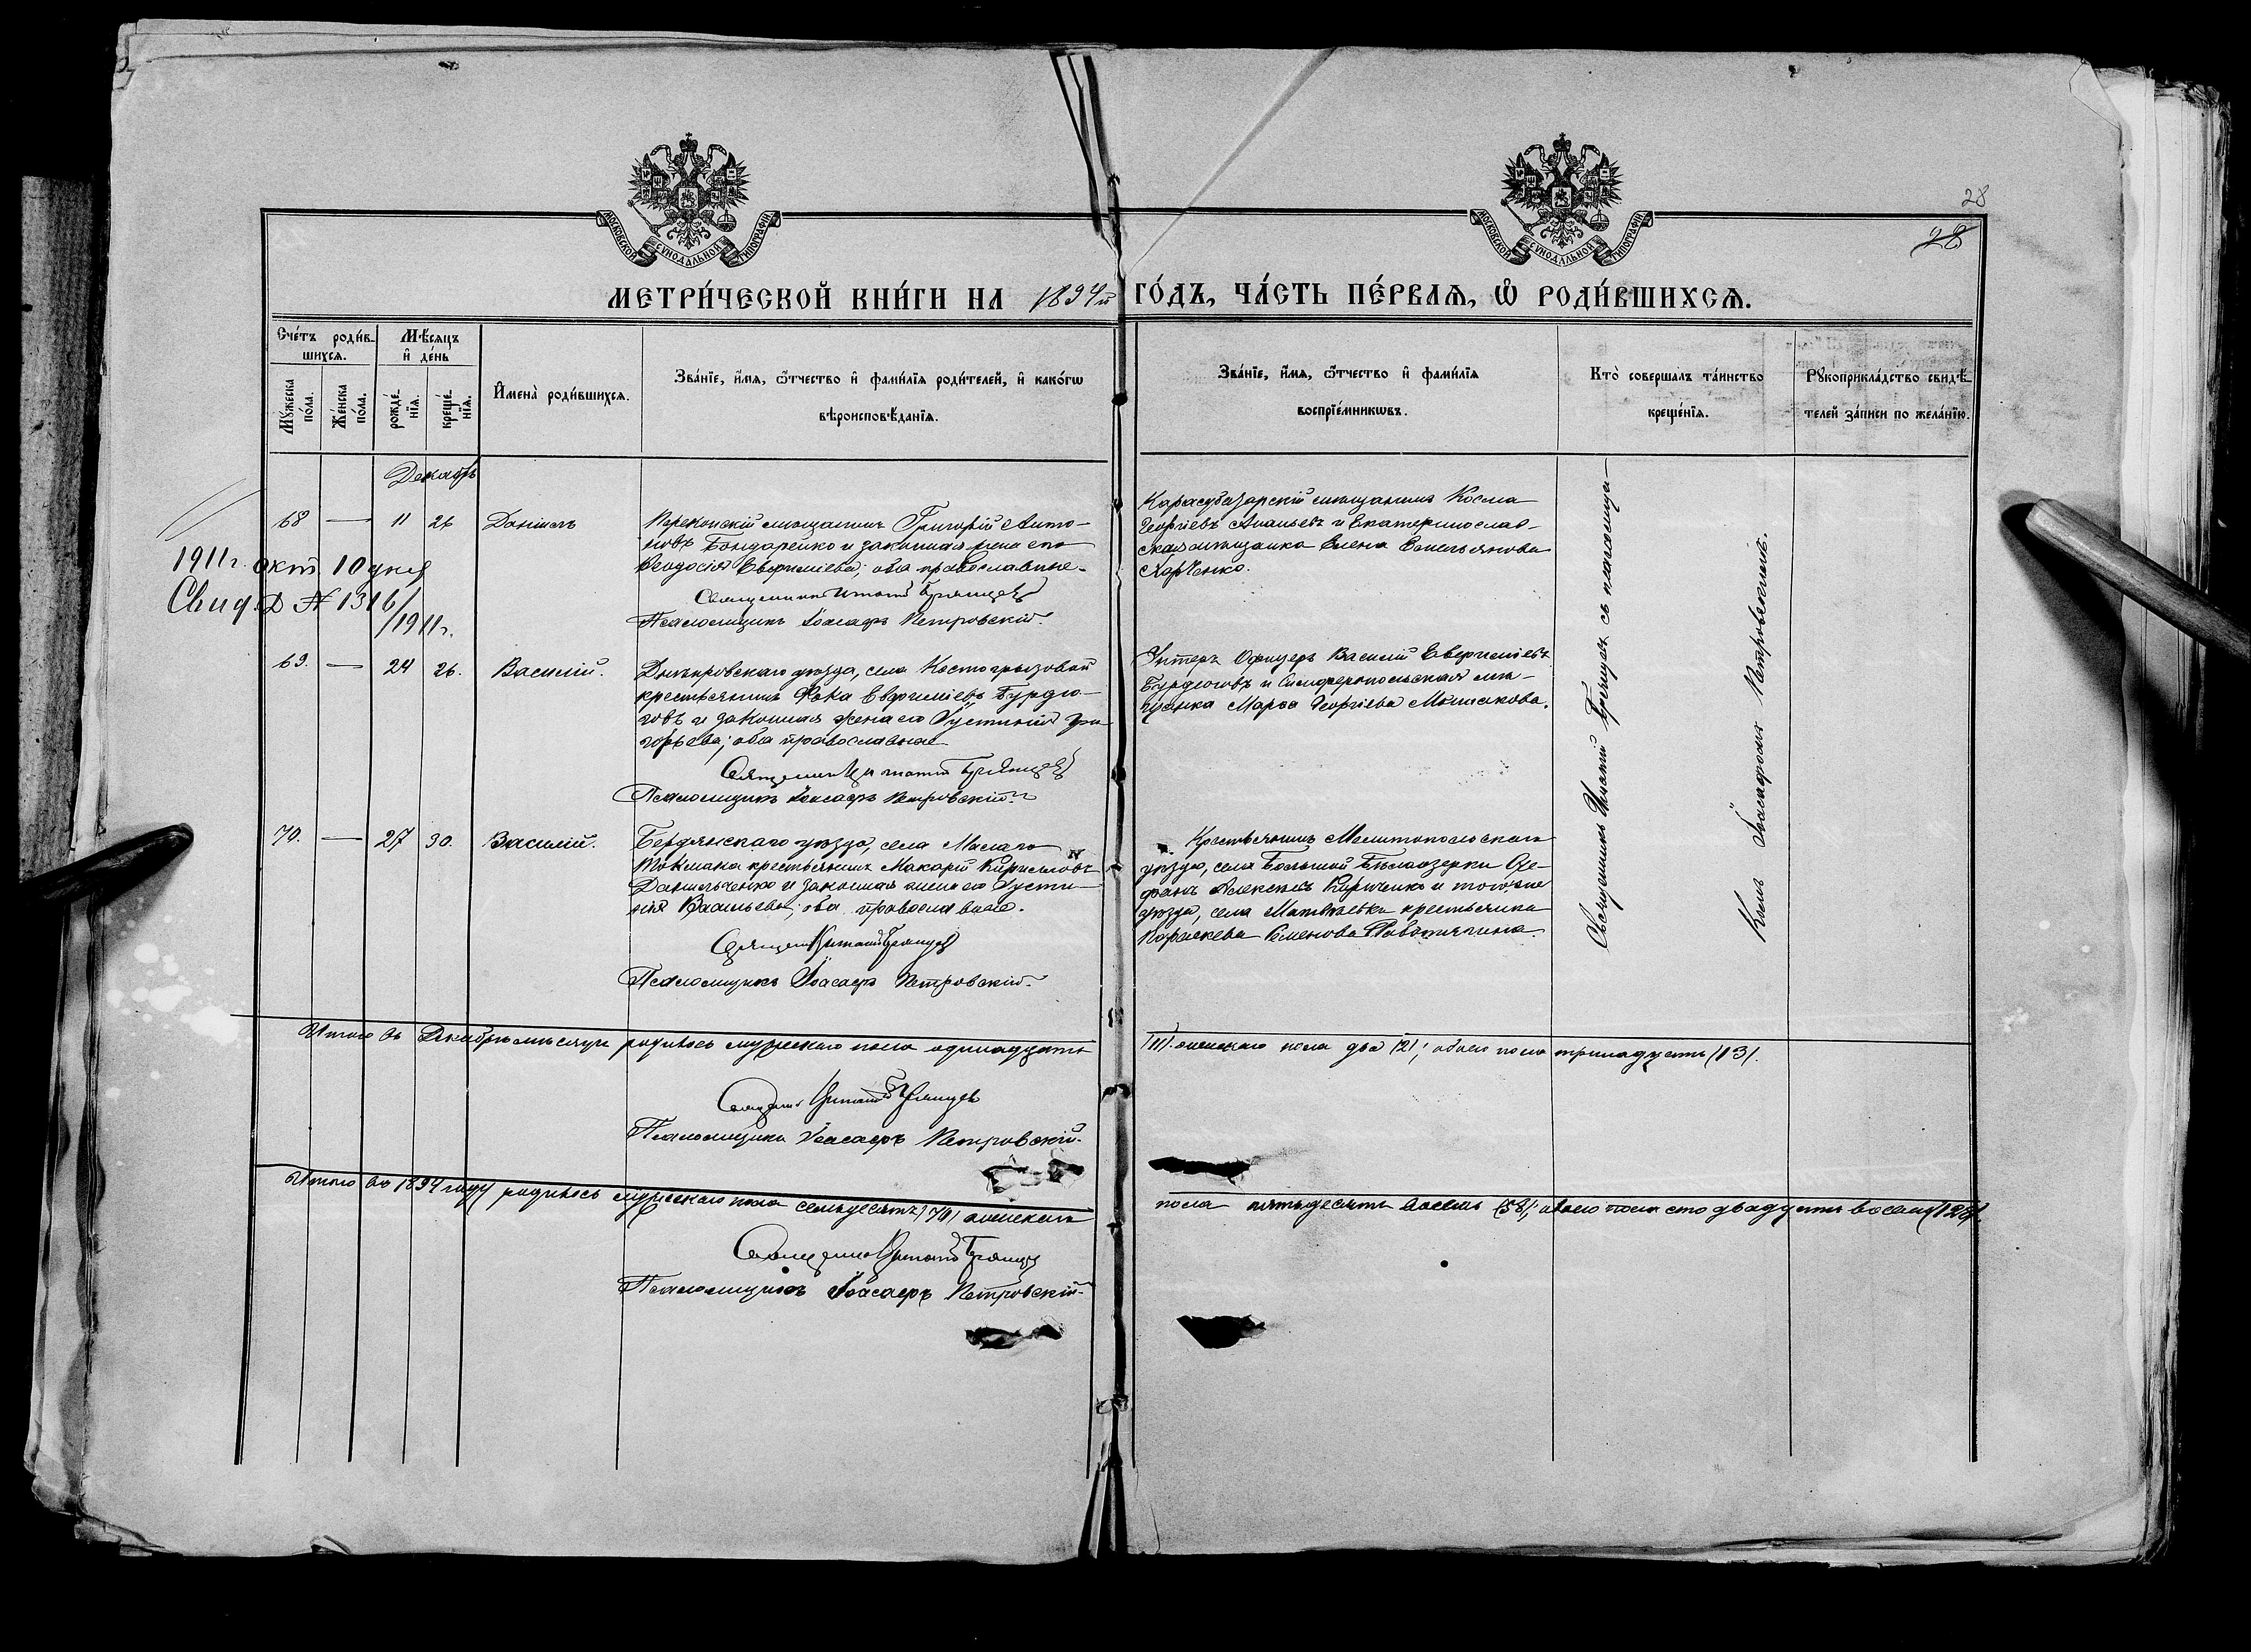 28
28
МОСКОВСКОЙ СѴНОДАЛЬНОЙ ТИПОГРАФІИ
МОСКОВСКОЙ СѴНОДАЛЬНОЙ ТИПОГРАФІИ
МЕТРИ́ЧЕСКОЙ КНИ́ГИ НА 1894й ГО́ДЪ, ЧА́СТЬ ПЕ́РВАѦ, Ѡ҆ РОДИ́ВШИХСѦ.
Сче́тъ роди́в-
шихсѧ.
Мꙋ́жеска
по́ла.
Же́нска
по́ла.
Мѣ́сѧцъ
и҆ де́нь
рожде́-
нїѧ.
креще́-
нїѧ.
И҆мена̀ роди́вшихсѧ.
Зва́нїе, и҆́мѧ, ѻ҆́тчество и҆ фами́лїѧ роди́телей, и҆ како́гѡ
вѣроисповѣ́данїѧ.
Зва́нїе, и҆́мѧ, ѻ҆́тчество и҆ фами́лїѧ
воспрїе́мникѡвъ.
Кто̀ соверша́лъ та́инство
креще́нїѧ.
Рꙋкоприкла́дство свидѣ́-
телей за́писи по жела́нїю.
Декабрь
68 — 11 26 Даніилъ
Перекопскій мещанинъ Григорій Анто-
новъ Бондаренко и законная жена его
Феодосія Евфиміева; оба православные.
Священникъ Игнатій Брянцевъ
Псаломщикъ Іоасафъ Петровскій.
Карасубазарскій мещанинъ Косма
Георгіевъ Ананьевъ и Екатеринослав-
ская мещанка Елена Емельянова
Харченко.
1911г. окт 10 дня
Свид. Д № 1316/
/1911г.
69. — 24 26. Василій.
Днепровскаго уезда, села Костогрызовой
крестьянинъ Фока Евфиміевъ Бурдю-
говъ и законная жена его Іустинія Гри-
горьева; оба православные
Священникъ Игнатій Брянцевъ
Псаломщикъ Іоасафъ Петровскій.
Унтеръ Офицеръ Василій Евфиміевъ
Бурдюговъ и Симферопольская ме-
щанка Марфа Георгіева
70. — 27 30. Василій.
Бердянскаго уезда, села Малаго
Токмака крестьянинъ Макарій Кирилловъ
Данильченко и законная жена его Іусти-
нія Васильева; оба православные.
Священникъ Игнатій Брянцевъ
Псаломщикъ Іоасафъ Петровскій.
Крестьянинъ Мелитопольскаго
уезда, села Большой Белозерки
Алексеевъ Кириченко и того же
уезда, села Матвеевки крестьянка
Параскева Семенова
Священникъ Игнатій Брянцевъ съ псаломщи-
комъ Іоасафомъ Петровскимъ.
Итого въ Декабре месяце родилось мужескаго пола одинадцать /11/. женскаго пола два /2/; обоего пола тринадцать /13/.
Священникъ Игнатій Брянцевъ
Псаломщикъ Іоасафъ Петровскій.
Итого въ 1894 году родилось мужескаго пола семьдесятъ /70/ женскаго пола пятьдесятъ восемь (58); обоего пола сто двадцать восемь (128).
Священникъ Игнатій Брянцевъ
Псаломщикъ Іоасафъ Петровскій.